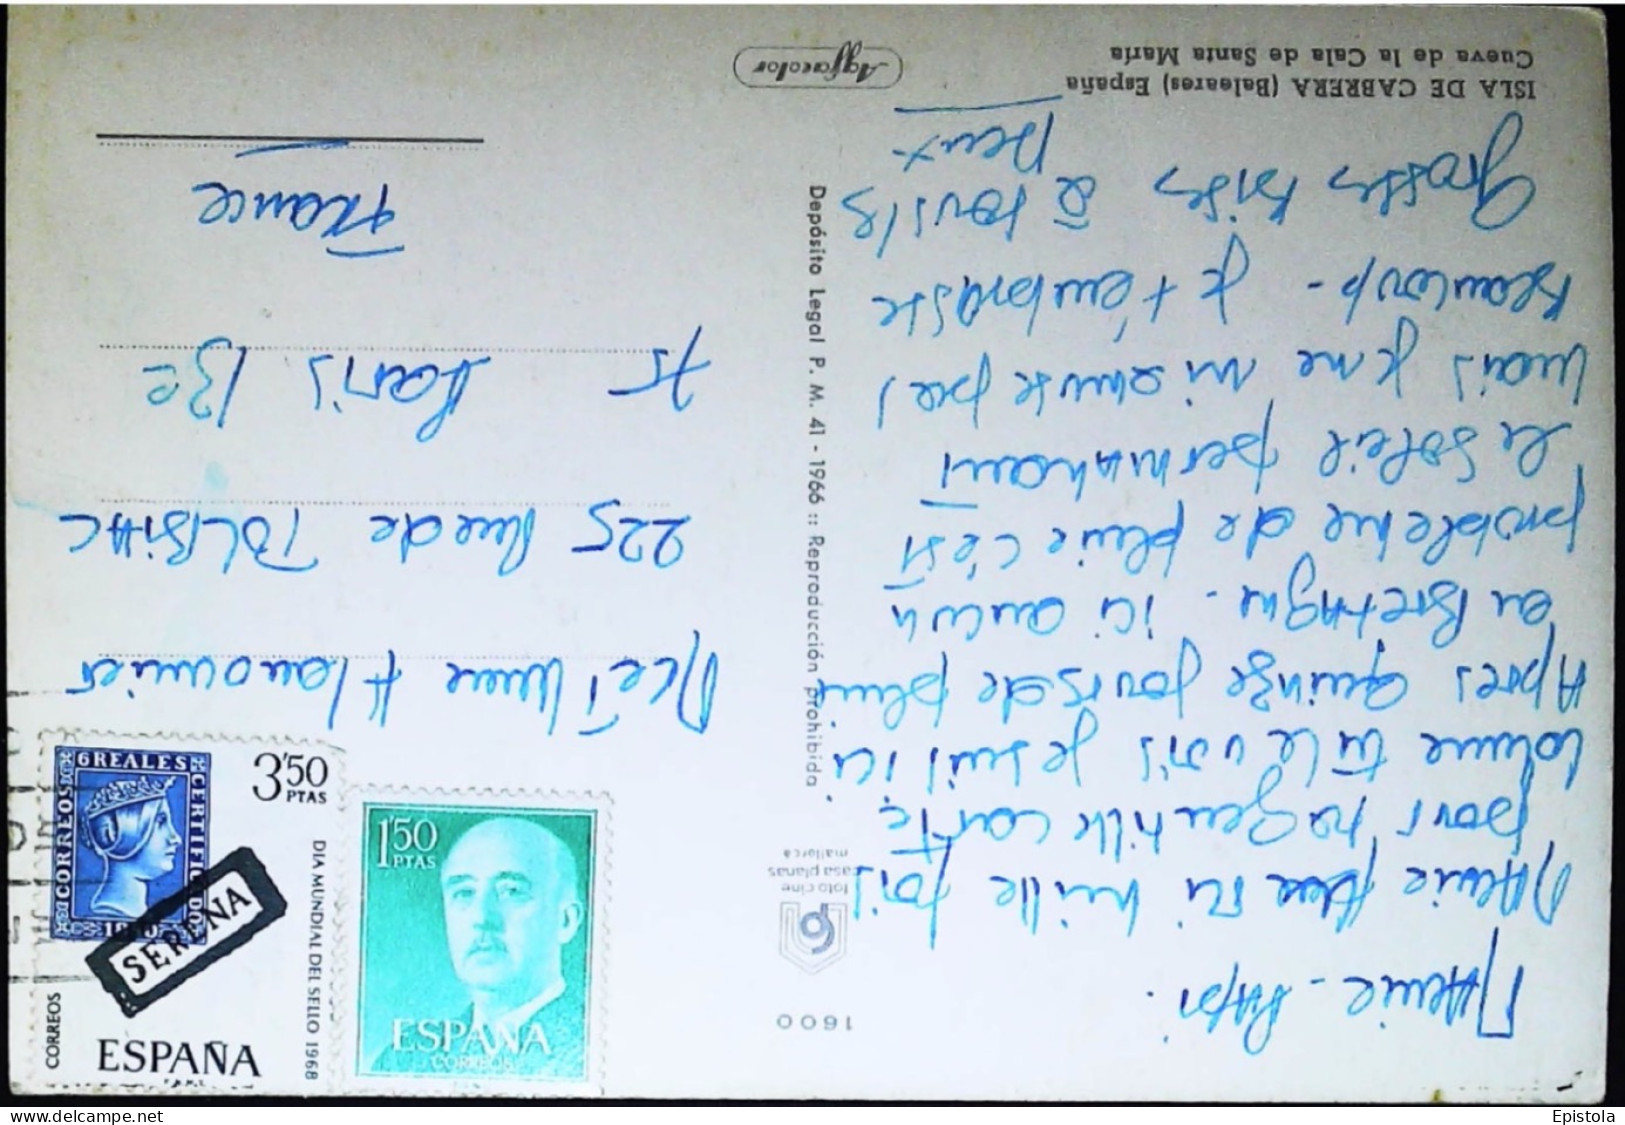 ISLA DE CABRERA (Baleares) España
Cueva de la Cala de Santa María
Agfacolor
1600
foto cine
casa planas
mallorca
Depósito Legal P. M. 41 - 1966 :: Reproducción prohibida
Mamie - Papi.
Mamie mille fois
pour ta gentille carte
comme tu le vois je suis ici
Apres quinze jours de pluie
en Bretagne. ici aucun
probleme de pluie c'est
le soleil permanant
mais je ne m'amuse pas
beaucoup - je t'embrasse
grosses bises à tous les
deux
Mr et Mme Hanounier
225 Rue de TOLBIAC
75 Paris 13e
France
6 REALES
CORREOS
CERTIFICADO
1850
3'50
PTAS
SERENA
DIA MUNDIAL DEL SELLO 1968
CORREOS
ESPAÑA
1'50
PTAS
ESPAÑA
CORREOS
delcampe.net
Epistola